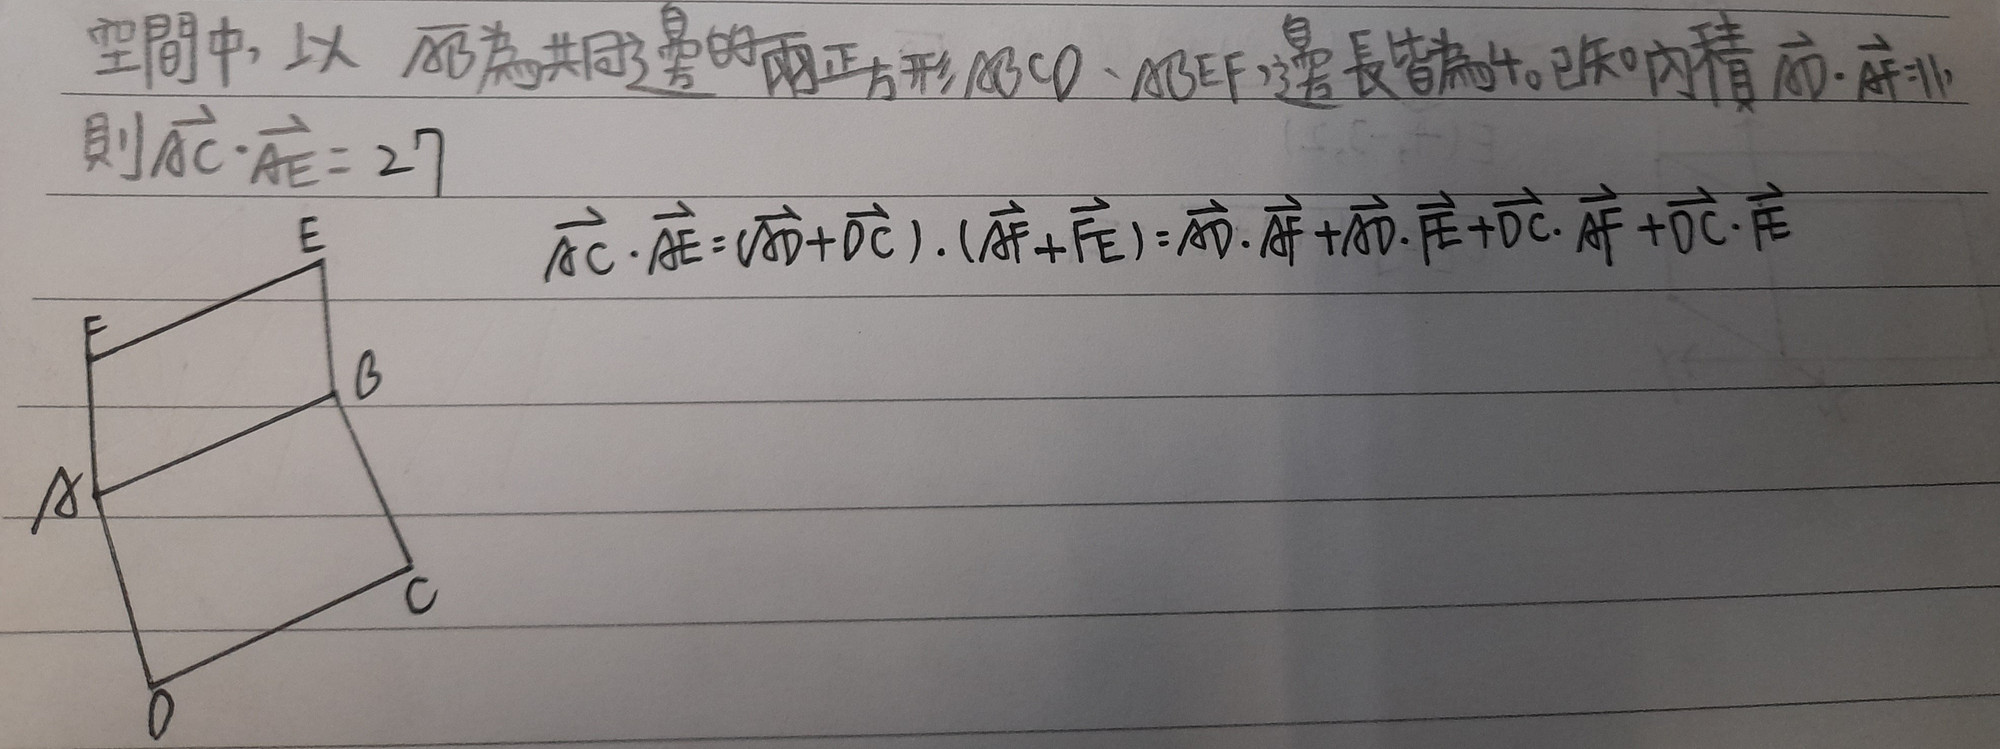 空間中,以 AB為共同邊的兩正方形ABCD、ABEF,邊長皆為4。已知內積 AD⃗·AF⃗=11,
則AC⃗·AE⃗=27
AC⃗·AE⃗=(AD⃗+DC⃗)·(AF⃗+FE⃗)=AD⃗·AF⃗+AD⃗·FE⃗+DC⃗·AF⃗+DC⃗·FE⃗
E
F
B
A
C
D